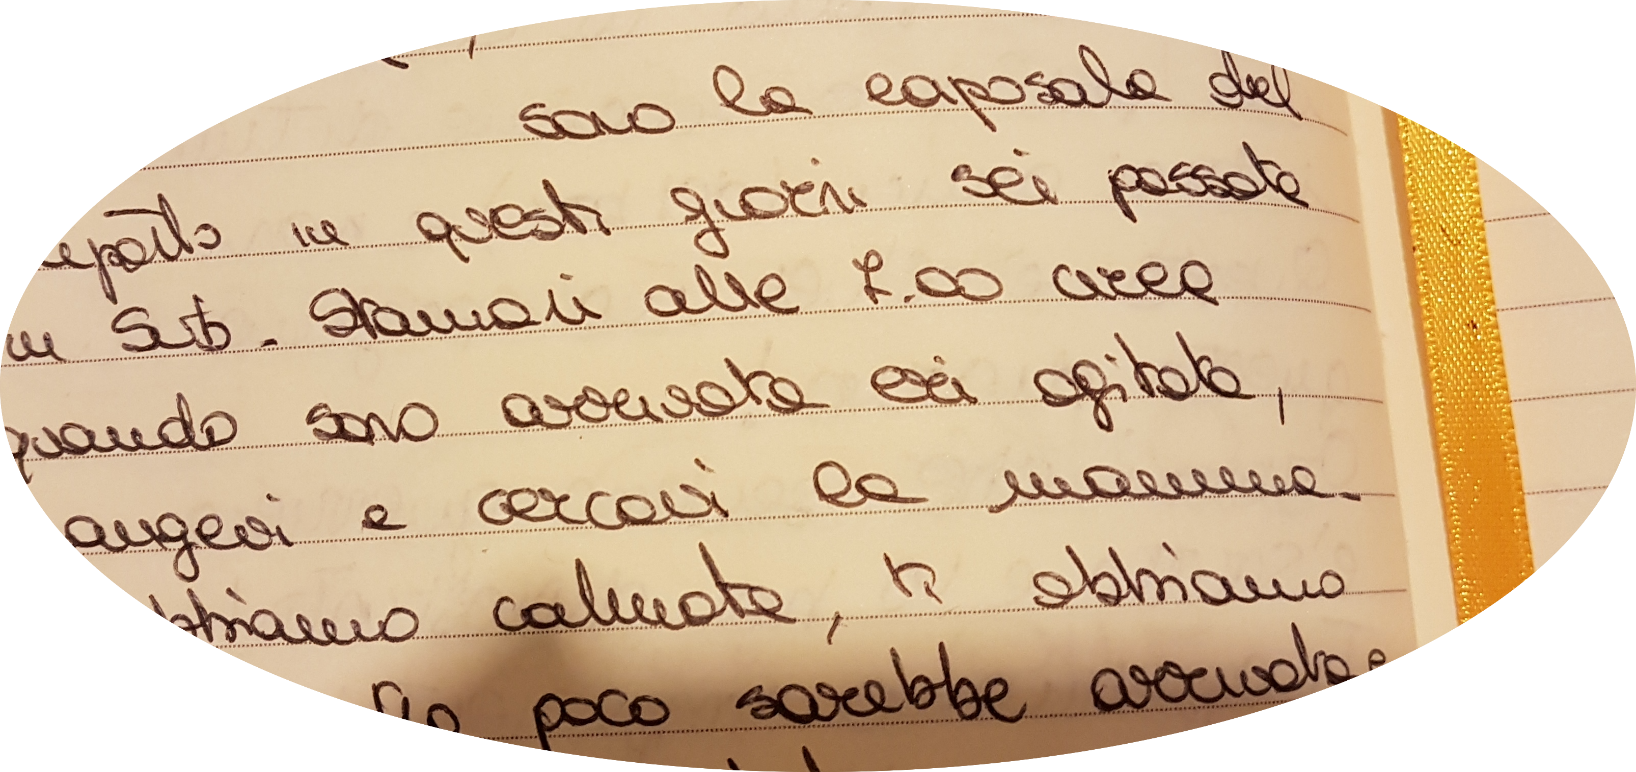 sono la caposala del
reparto in questi giorni sei passata
in Sub. Stamani alle 7.00 circa
quando sono arrivata eri agitata,
angevi e cercavi la mamma.
bbiamo calmata, ti abbiamo
poco sarebbe arrivata e